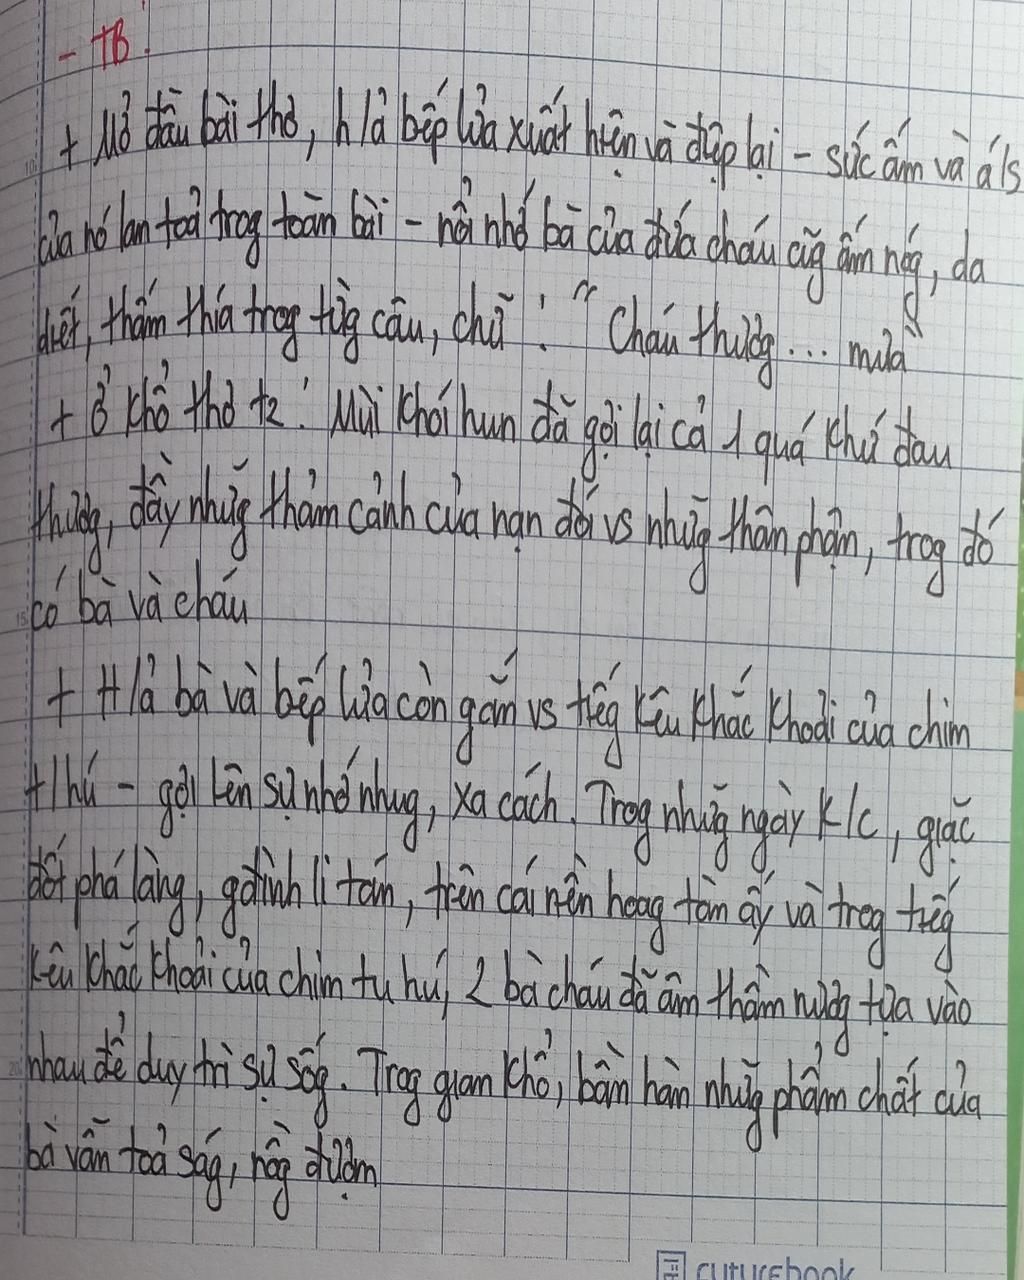 - TB:
+ Mở đầu bài thơ, h/ả bếp lửa xuất hiện và điệp lại - sức ấm và á/s
của nó lan toả trog toàn bài - nỗi nhớ bà của đứa cháu cũg ấm nóg, da
diết, thấm thía trog từg câu, chữ: "Cháu thươg... mưa"
+ Ở khổ thơ t2: Mùi khói hun đã gợi lại cả 1 quá khứ đau
thươg, đầy nhữg thảm cảnh của nạn đói vs nhữg thân phận, trog đó
có bà và cháu
+ H/ả bà và bếp lửa còn gắn vs tiếg kêu khắc khoải của chim
t/hú - gợi lên sự nhớ nhug, xa cách. Trog nhữg ngày k/c, giặc
đốt phá làng, gđình li tán, trên cái nền hoag tàn ấy và trog tiếg
kêu khắc khoải của chim tu hú, 2 bà cháu đã âm thầm nươg tựa vào
nhau để duy trì sự sốg. Trog gian khổ, bần hàn nhữg phẩm chất của
bà vẫn toả ság, nồg đượm
futurebook